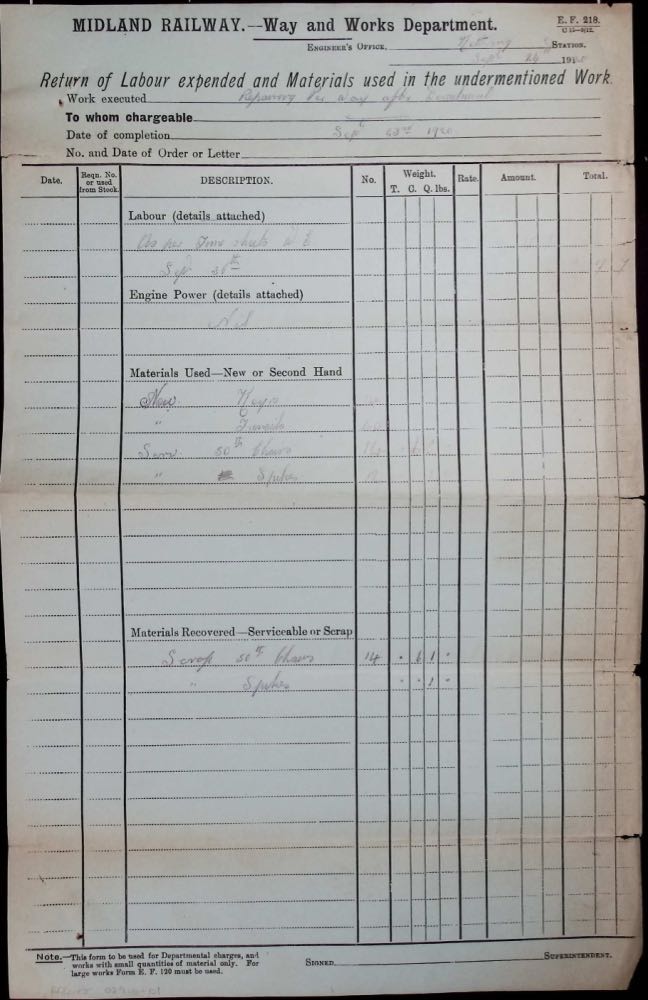 MIDLAND RAILWAY.—Way and Works Department.
E. F. 218.
ENGINEER'S OFFICE, STATION.
Sept 191
Return of Labour expended and Materials used in the undermentioned Work.
Work executed Repairing the way after
To whom chargeable
Date of completion Sept 1920
No. and Date of Order or Letter
Date. Reqn. No. or used from Stock. DESCRIPTION. No. Weight. T. C. Q. lbs. Rate. Amount. Total.
Labour (details attached)
As per Time sheets
Sept
Engine Power (details attached)
Nil
Materials Used—New or Second Hand
New Keys
"
50 Chairs
" Spikes
Materials Recovered—Serviceable or Scrap
Scrap 50 Chairs 14 · 6 1 ·
" Spikes · · 1 ·
Note.—This form to be used for Departmental charges, and
works with small quantities of material only. For
large works Form E. F. 120 must be used.
SIGNED, SUPERINTENDENT.